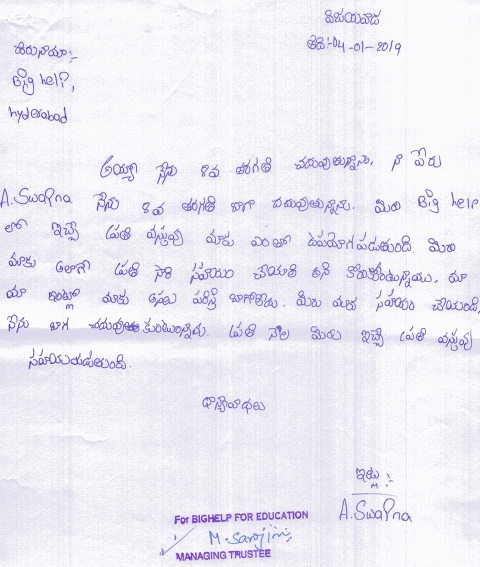 విజయవాడ
తేది:-04-01-2019
చిరునామా:-
Big help,
hyderabad
అయ్యా నేను 8వ తరగతి చదువుతున్నాను. నా పేరు
A.Swapna నేను 8వ తరగతి బాగా చదువుతున్నాను. మీరు Big help
లో ఇచ్చే ప్రతి వస్తువు మాకు ఎంతో ఉపయోగపడుతుంది. మీరు
మాకు అలాగే ప్రతి సారి సహయం చేయాలి అని కోరుకుంటున్నాము.
మా ఇంట్లో మాకు అసలు బాగోలేదు. మీరు మాకు సహయం చేయండి,
నేను బాగ చదువుకుంటున్నాను. ప్రతి నెల మీరు ఇచ్చే ప్రతి వస్తువు
సహయపడుతుంది.
ధాన్యవాధలు
ఇట్లు:
A.Swapna
For BIGHELP FOR EDUCATION
M. Sarojini
MANAGING TRUSTEE